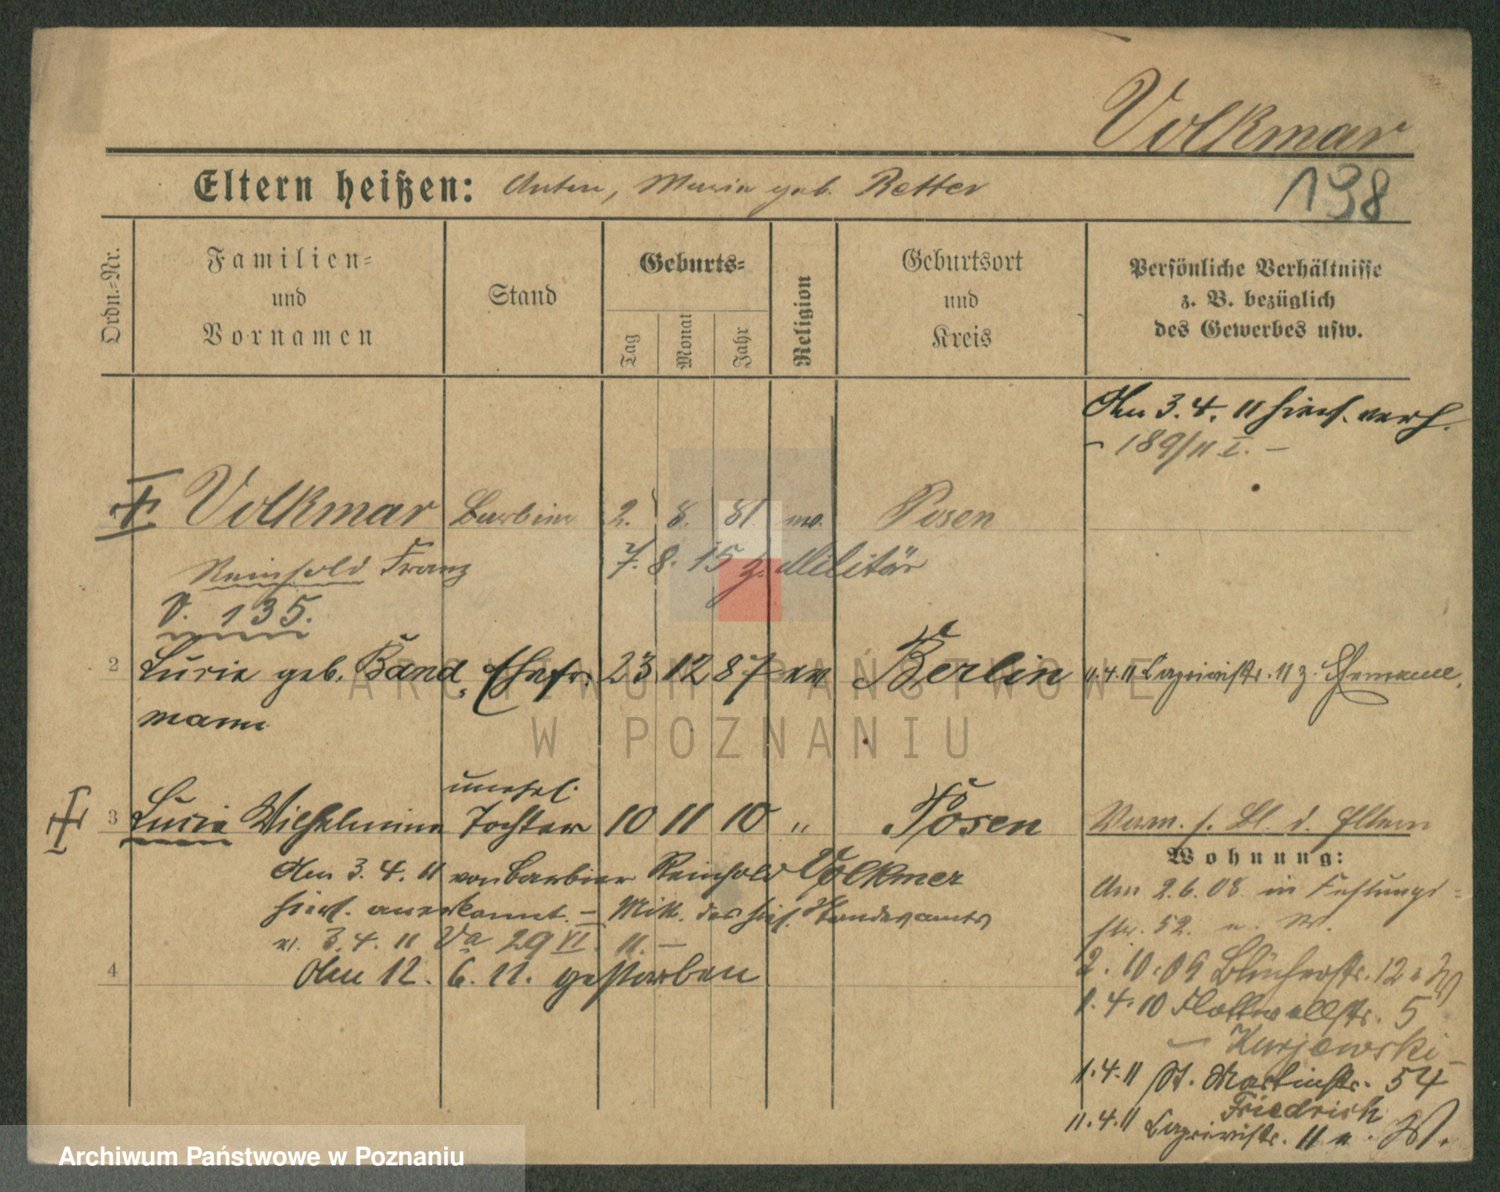 Volkmar
198
Eltern heißen: Anton, Maria geb. Retter
Ordn.-Nr.
Familien-
und
Vornamen
Stand
Geburts-
Tag
Monat
Jahr
Religion
Geburtsort
und
Kreis
Persönliche Verhältnisse
z. B. bezüglich
des Gewerbes usw.
Am 3.4.11 hies. verh.
- 189/11 I. -
Volkmar Barbier 2. 8. 81 Posen
Reinhold Franz 7. 8. 15 z. Militär
V. 135.
2 Lucie geb. Band Ehefr. 23 12 87 ev Berlin 11.4.11 11 z. Ehemann.
mann
unehel.
3 Lucie Wilhelmine Tochter 10 11 10 " Posen d. Eltern
Wohnung:
Am 3.4.11 von Barbier Reinhold Volkmer
hies. anerkannt. - Mitt. des hies. Standesamts
v. 3.4.11 Va 29 VI. 11. -
4 Am 12. 6. 11. gestorben
Am 2.6.08 in Festungs-
str. 52.
2.10.09 Blücherstr. 12
1.4.10 Flottwellstr. 5
- Kurjewski -
1.4.11 St. Martinstr. 54
Friedrich
11.4.11 11
ARCHIWUM PAŃSTWOWE
W POZNANIU
Archiwum Państwowe w Poznaniu